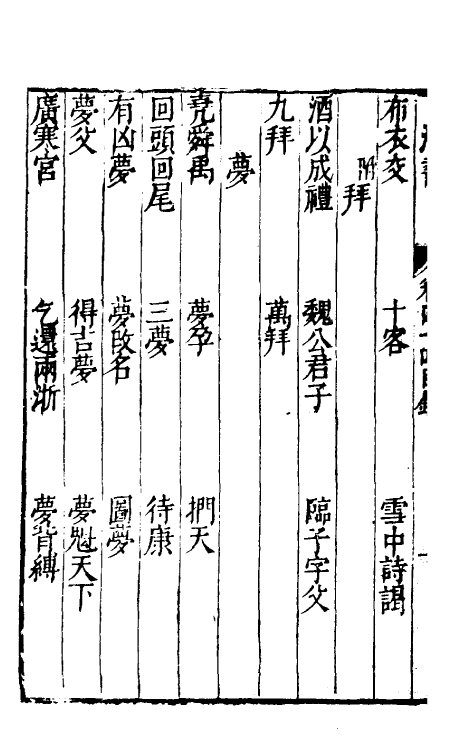 布衣交　十客　雪中詩謁
附拜
酒以成禮　魏公君子　臨子字父
九拜　萬拜
夢
堯舜禹　夢孕　捫天
回頭回尾　三夢　待康
有凶夢　夢改名　圓夢
夢父　得吉夢　夢魁天下
廣寒宮　乞還兩浙　夢背縛